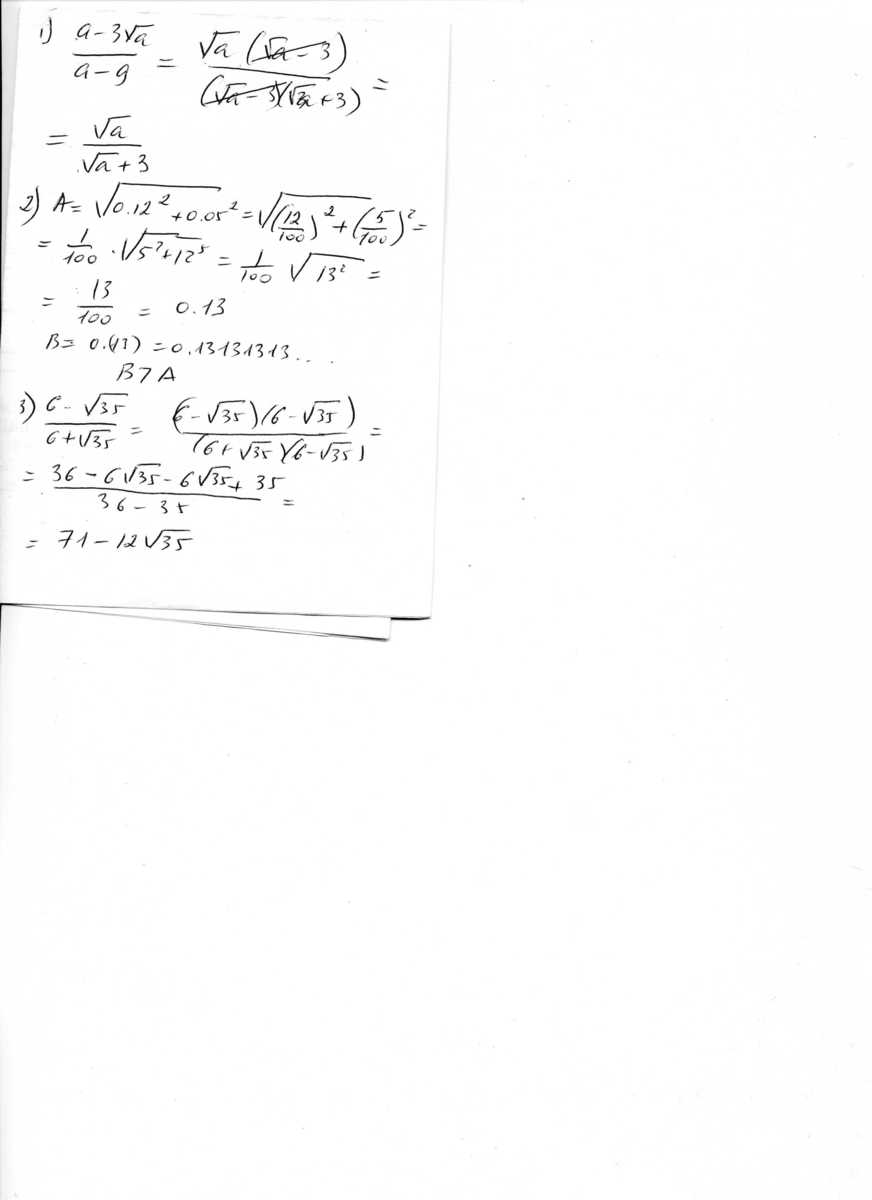 1) (a-3√a)/(a-9) = √a (√a-3)/((√a-3)(√a+3)) =
= √a/(√a+3)
2) A= √(0.12²+0.05²) = √((12/100)²+(5/100)²) =
= 1/100 · √(5²+12⁵) = 1/100 √(13²) =
= 13/100 = 0.13
B= 0.(13) = 0.13131313....
B>A
3) (6-√35)/(6+√35) = (6-√35)(6-√35)/((6+√35)(6-√35)) =
= (36-6√35-6√35+35)/(36-35) =
= 71-12√35